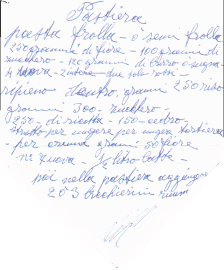 Pastiera
pasta frolla - o semi frolla
250 grammi di fiore - 100 grammi di
zucchero - 120 grammi di burro o sugna
4 uova - 2 intere due soli rossi -
ripieno dentro, grammi 250 riso
grammi 300 - zucchero -
250 - di ricotta - 150 - cedro -
strutto per ungere per ungere tortiera
- per crema grammi 50 fiore
n: 2 uova - ½ litro latte -
poi nella pastiera aggiungere
2 o 3 bicchierini rum